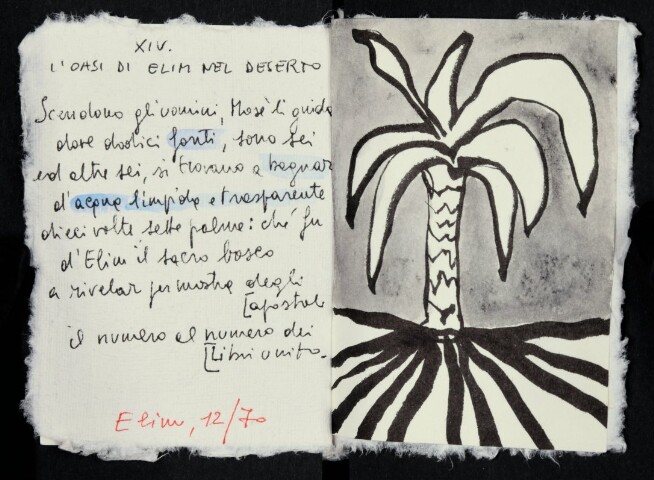 XIV.
L'OASI DI ELIM NEL DESERTO
Scendono gli uomini, Mosè li guida
dove dodici fonti, sono sei
ed altre sei, si trovano a bagnar
d'acqua limpida e trasparente
dieci volte sette palme: ché fu
d'Elim il sacro bosco
a rivelar per mostra degli
[apostoli
il numero al numero dei
[Libri unito.
Elim, 12/70